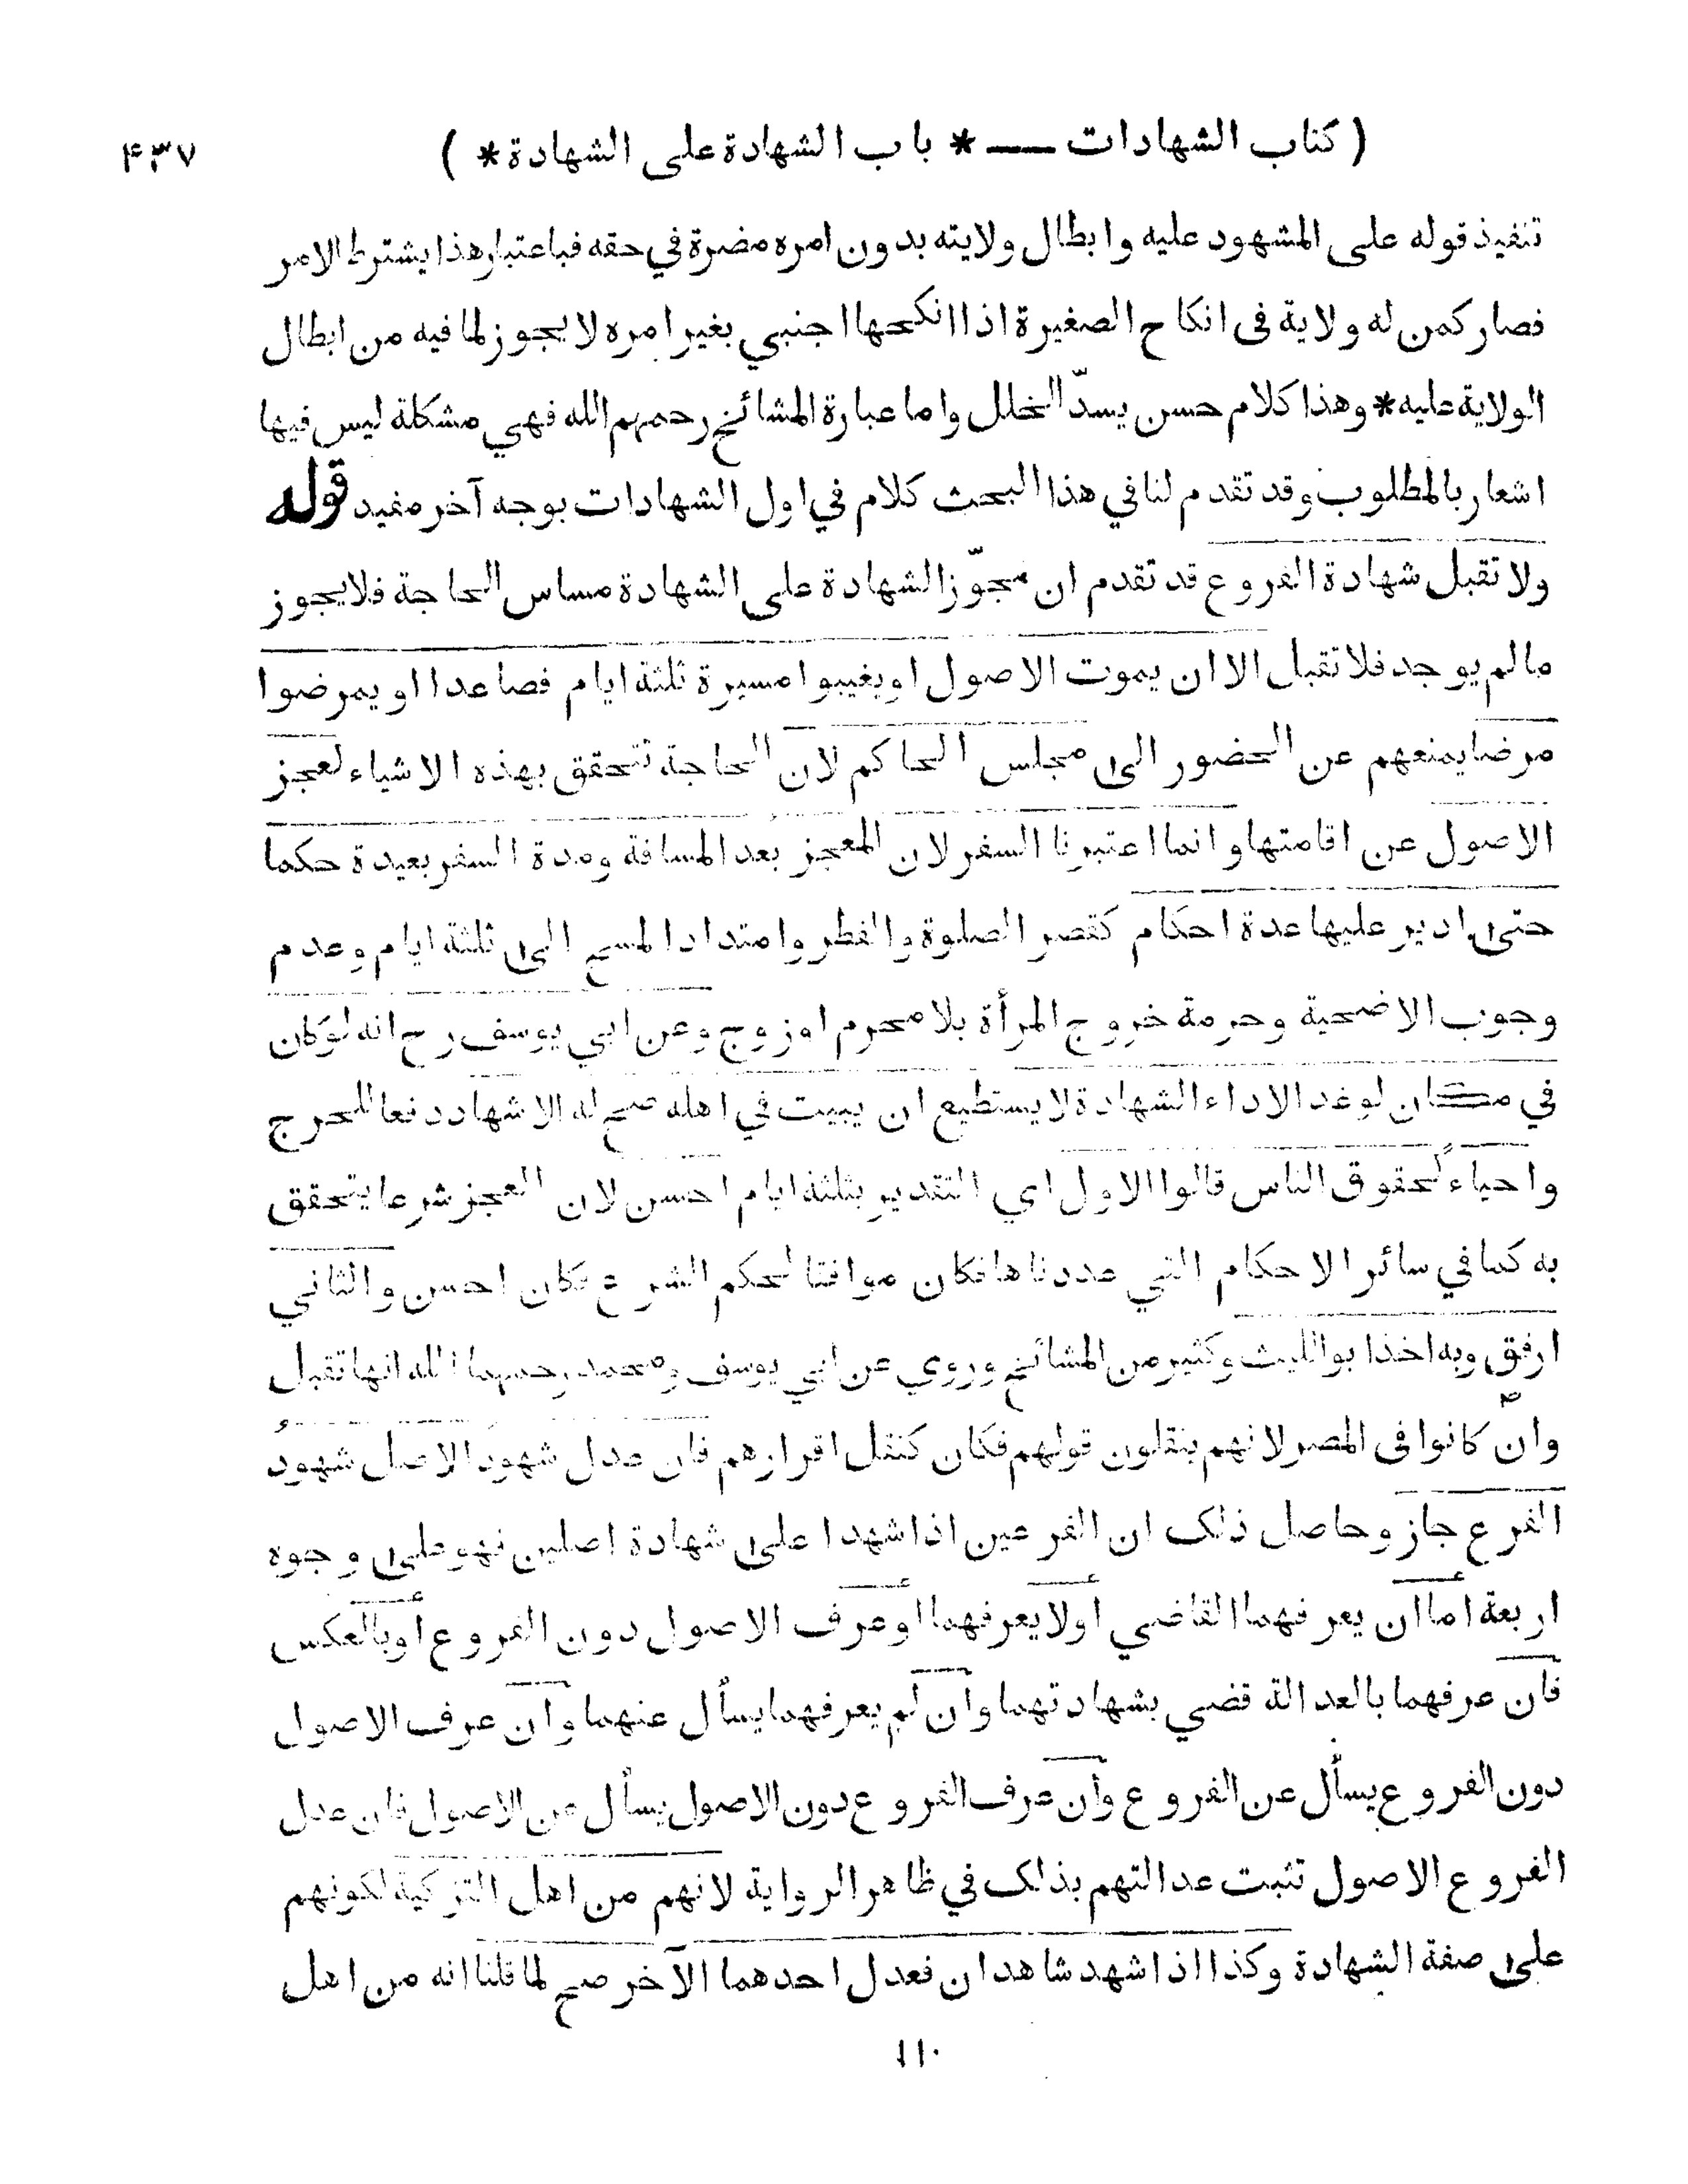 ( كتاب الشهادات — * باب الشهادة على الشهادة * ) ۴۳۷
تنفيذ قوله على المشهود عليه وابطال ولايته بدون امره مضرة في حقه فباعتبار هذا يشترط الامر
فصار كمن له ولاية فى انكاح الصغيرة اذا انكحها اجنبي بغير امره لا يجوز لما فيه من ابطال
الولاية عليه * وهذا كلام حسن يسدّ الخلل واما عبارة المشائخ رحمهم الله فهي مشكلة ليس فيها
اشعار بالمطلوب وقد تقدم لنا في هذا البحث كلام في اول الشهادات بوجه آخر مفيد قوله
ولا تقبل شهادة الفروع قد تقدم ان مجوّز الشهادة على الشهادة مساس الحاجة فلا يجوز
ما لم يوجد فلا تقبل الا ان يموت الاصول او يغيبوا مسيرة ثلثة ايام فصاعدا او يمرضوا
مرضا يمنعهم عن الحضور الى مجلس الحاكم لان الحاجة تتحقق بهذه الاشياء لعجز
الاصول عن اقامتها وانما اعتبرنا السفر لان المعجز بعد المسافة ومدة السفر بعيدة حكما
حتى ادير عليها عدة احكام كقصر الصلوة والفطر وامتداد المسح الى ثلثة ايام وعدم
وجوب الاضحية وحرمة خروج المرأة بلا محرم او زوج وعن ابي يوسف رح انه لو كان
في مكان لو غدا لاداء الشهادة لا يستطيع ان يبيت في اهله صح له الاشهاد دفعا للحرج
واحياء لحقوق الناس قالوا الاول اي التقدير بثلثة ايام احسن لان العجز شرعا يتحقق
به كما في سائر الاحكام التي عددناها فكان موافقا لحكم الشرع فكان احسن والثاني
ارفق وبه اخذ ابو الليث وكثير من المشائخ وروي عن ابي يوسف ومحمد رحمهما الله انها تقبل
وان كانوا فى المصر لانهم ينقلون قولهم فكان كنقل اقرارهم فان عدل شهودَ الاصل شهودُ
الفرع جاز وحاصل ذلك ان الفرعين اذا شهدا على شهادة اصلين فهو على وجوه
اربعة اما ان يعرفهما القاضي أولا يعرفهما أو عرف الاصول دون الفروع أو بالعكس
فان عرفهما بالعدالة قضي بشهادتهما وان لم يعرفهما يسأل عنهما وان عرف الاصول
دون الفروع يسأل عن الفروع وان عرف الفروع دون الاصول يسأل عن الاصول فان عدل
الفروع الاصول تثبت عدالتهم بذلك في ظاهر الرواية لانهم من اهل التزكية لكونهم
على صفة الشهادة وكذا اذا شهد شاهدان فعدل احدهما الآخر صح لما قلنا انه من اهل
۱۱۰